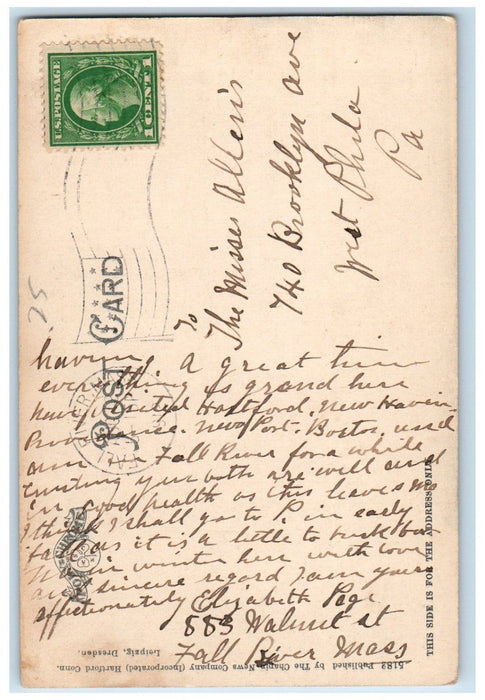 U.S. POSTAGE
1 CENT 1
25
POST CARD
To
The Misses Allen's
740 Brooklyn Ave
West Phila
Pa
having A great time
everything is grand here
have visited Hartford, New Haven
Providence, New Port, Boston, and
am in Fall River for a while
trusting you both are well and
in good health as this leaves me
I think I shall go to P. in early
as it is a little to
in winter here with love
and sincere regard I am yours
affectionately Elizabeth Page
883 Walnut st
Fall River Mass
THIS SIDE IS FOR THE ADDRESS ONLY
5182 Published by The Chapin News Company (Incorporated) Hartford Conn.
Leipzig, Dresden.